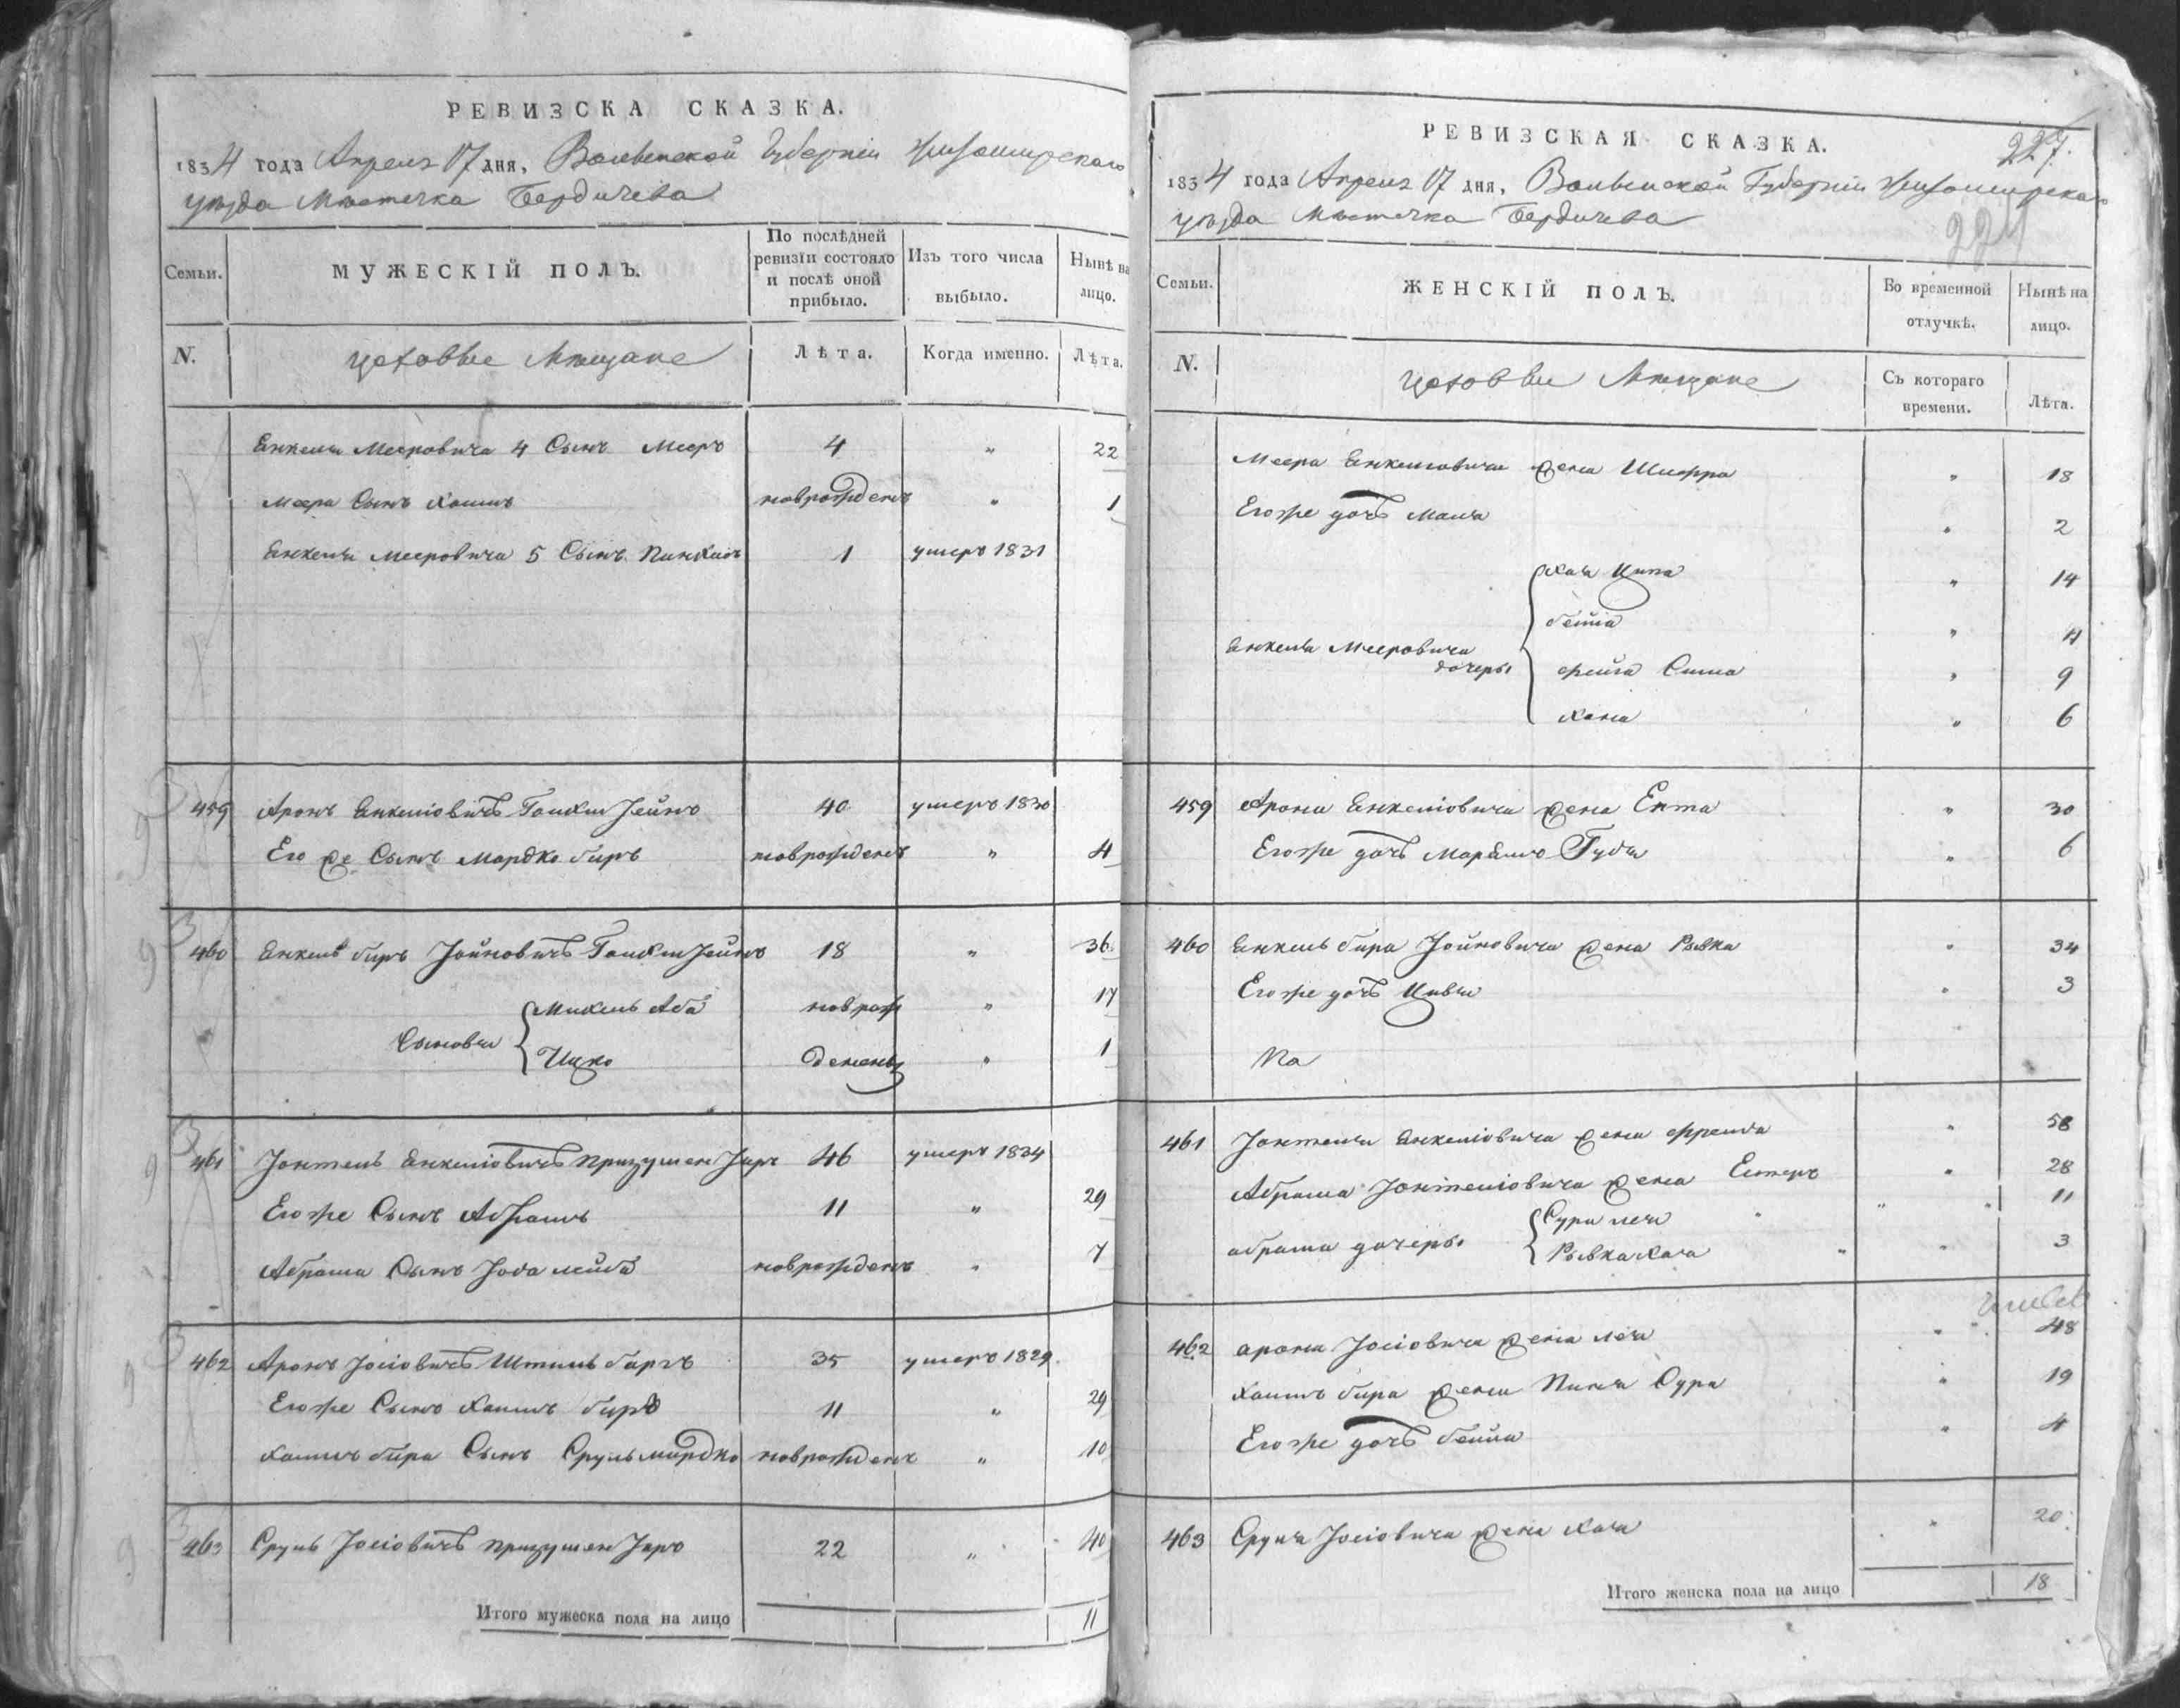 РЕВИЗСКА СКАЗКА.
1834 года Апреля 17 дня, Волынской Губерніи Житомирскаго
уѣзда Мѣстечка Бердичева
Семьи.
МУЖЕСКІЙ ПОЛЪ.
По послѣдней ревизіи состояло и послѣ оной прибыло.
Изъ того числа выбыло.
Нынѣ на лицо.
N.
цеховые Мѣщане
Лѣта.
Когда именно.
Лѣта.
Енкеля Мееровича 4 Сынъ Мееръ 4 " 22
Меера Сынъ Хаимъ новорожденъ " 1
Енкеля Мееровича 5 Сынъ Пинхасъ 1 умеръ 1831
459 Аронъ Енкеліовичъ 40 умеръ 1830
Его же Сынъ Мордко биръ новрожденъ " 4
460 Енкель биръ Іойновичъ 18 " 36
Сыновья { Михель Аба новрож " 17
Ицко денны " 1
461 Іонтель Енкеліовичъ 46 умеръ 1834
Его же Сынъ Абрамъ 11 " 29
Абрама Сынъ Іова лейба новрожденъ " 7
462 Аронъ Іосіовичъ Штильбаргъ 35 умеръ 1829
Его же Сынъ Хаимъ биръ 11 " 29
Хаимъ бира Сынъ Сруль мордко новрожденъ " 10
463 Сруль Іосіовичъ 22 " 40
Итого мужеска пола на лицо 11
РЕВИЗСКАЯ СКАЗКА.
227.
1834 года Апреля 17 дня, Волынской Губерніи Житомирскаго
уѣзда Мѣстечка Бердичева
224
Семьи.
ЖЕНСКІЙ ПОЛЪ.
Во временной отлучкѣ.
Нынѣ на лицо.
N.
цеховые Мѣщане
Съ котораго времени.
Лѣта.
Меера Енкеліовича жена Шифра " 18
Его же дочь Маля " 2
Енкеля Мееровича дочеры { Хая Ципа " 14
бейла " 11
фейга Сима " 9
Хана " 6
459 Арона Енкеліовича жена Ента " 30
Его же дочь Марьямъ Гудя " 6
460 Енкель бира Іойновича жена Рывка " 34
Его же дочь Цивья " 3
На
461 Іонтеля Енкеліовича жена фрейда " 58
Абрама Іонтеліовича жена Естеръ " 28
абрама дочеры { Сура лея " 11
Рывка хая " 3
462 арона Іосіовича жена лея " 48
Хаимъ бира жена Пиня Сура " 19
Его же дочь бейла " 4
463 Сруля Іосіовича жена Хая " 20
Итого женска пола на лицо 18